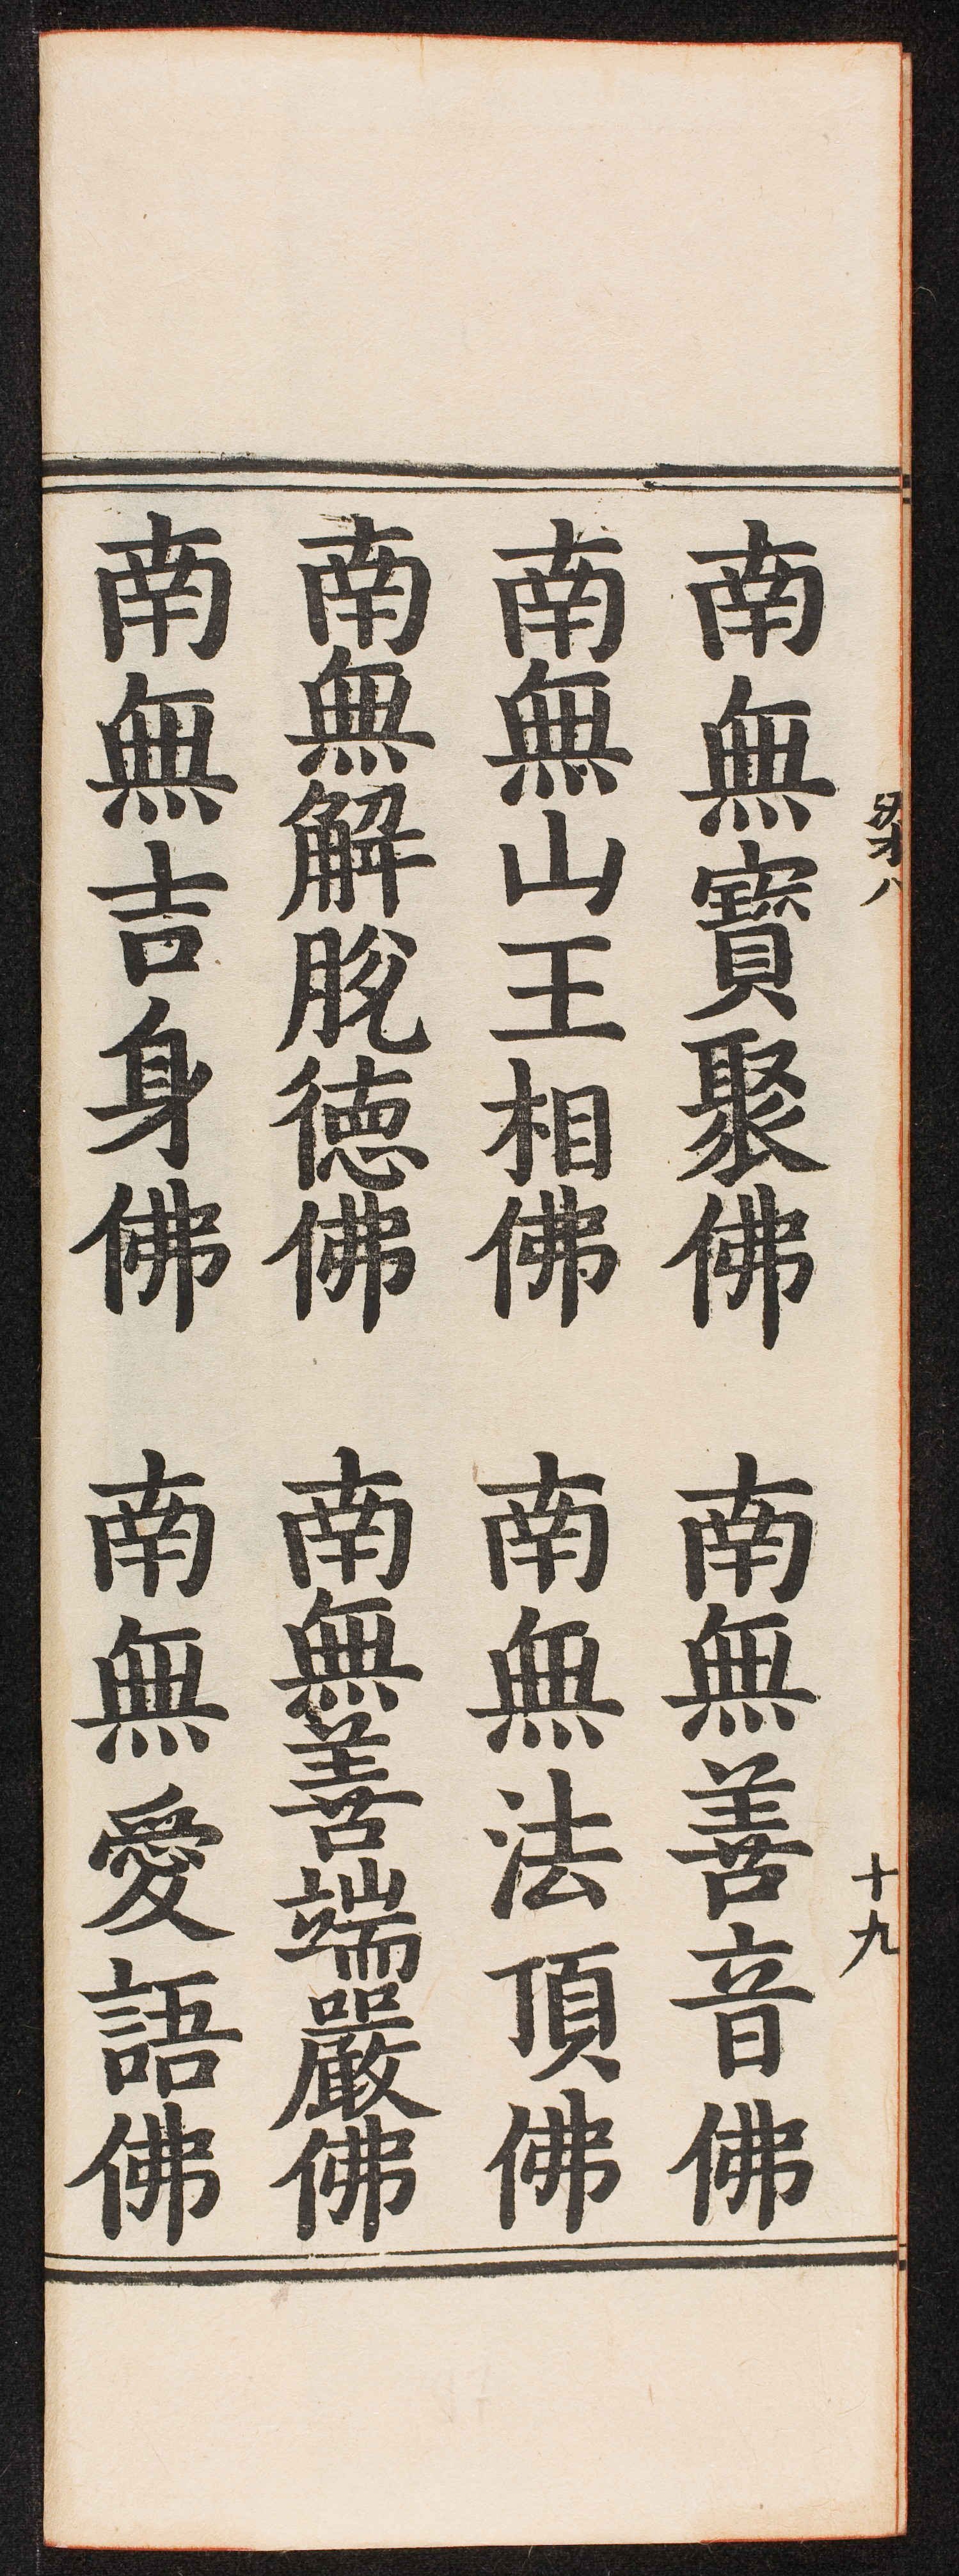 南無寶聚佛　南無善音佛
南無山王相佛　南無法頂佛
南無解脫德佛　南無善端嚴佛
南無吉身佛　南無愛語佛
十九